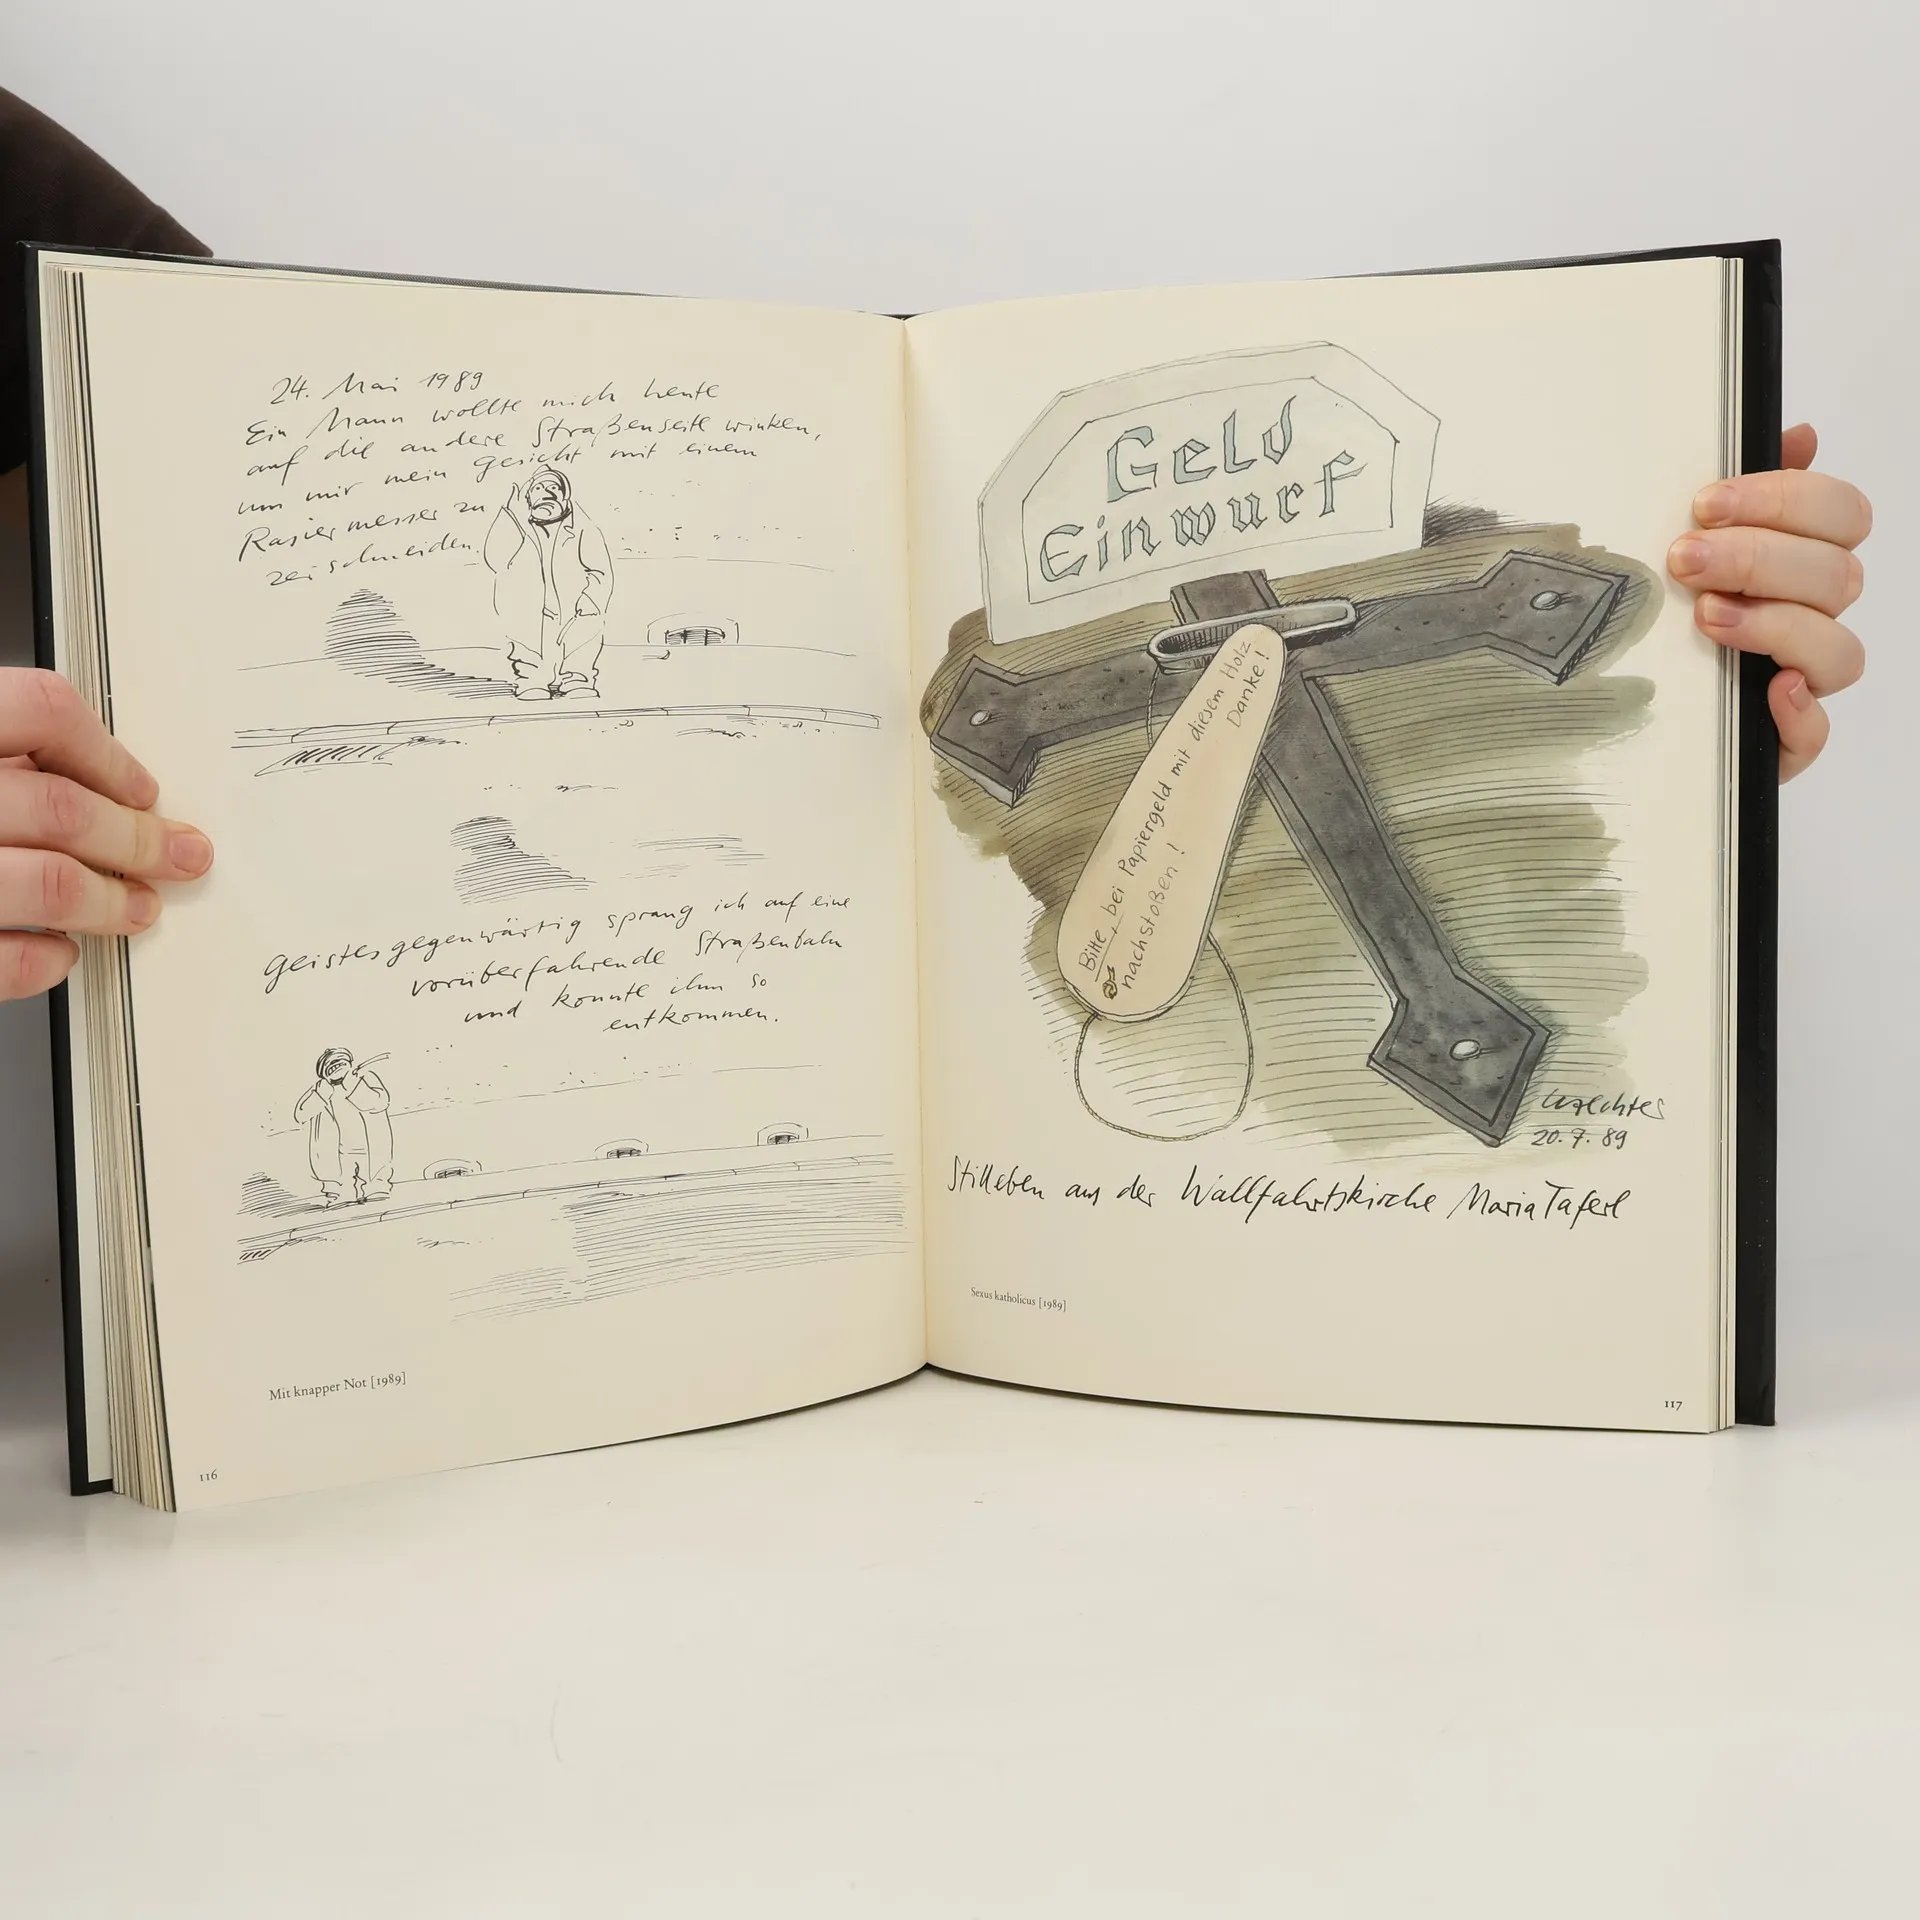 24. Mai 1989
Ein Mann wollte mich heute
auf die andere Straßenseite winken,
um mir mein Gesicht mit einem
Rasiermesser zu
zerschneiden.
Geistesgegenwärtig sprang ich auf eine
vorüberfahrende Straßenbahn
und konnte ihm so
entkommen.
Mit knapper Not [1989]
116
Geld
Einwurf
Bitte, bei Papiergeld mit diesem Holz
nachstoßen! Danke!
Waechter
20. 7. 89
Stilleben aus der Wallfahrtskirche Maria Taferl
Sexus katholicus [1989]
117